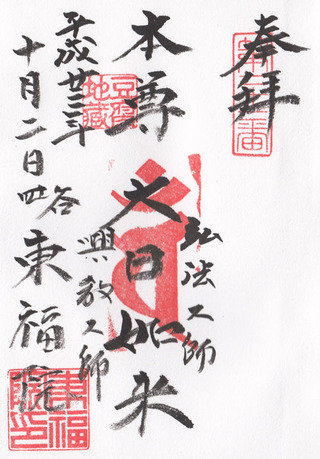 奉拝
弘法大師
本尊 大日如来
興教大師
平成廿三年
十月二日 四谷
東福院
豆腐地蔵
東福院印